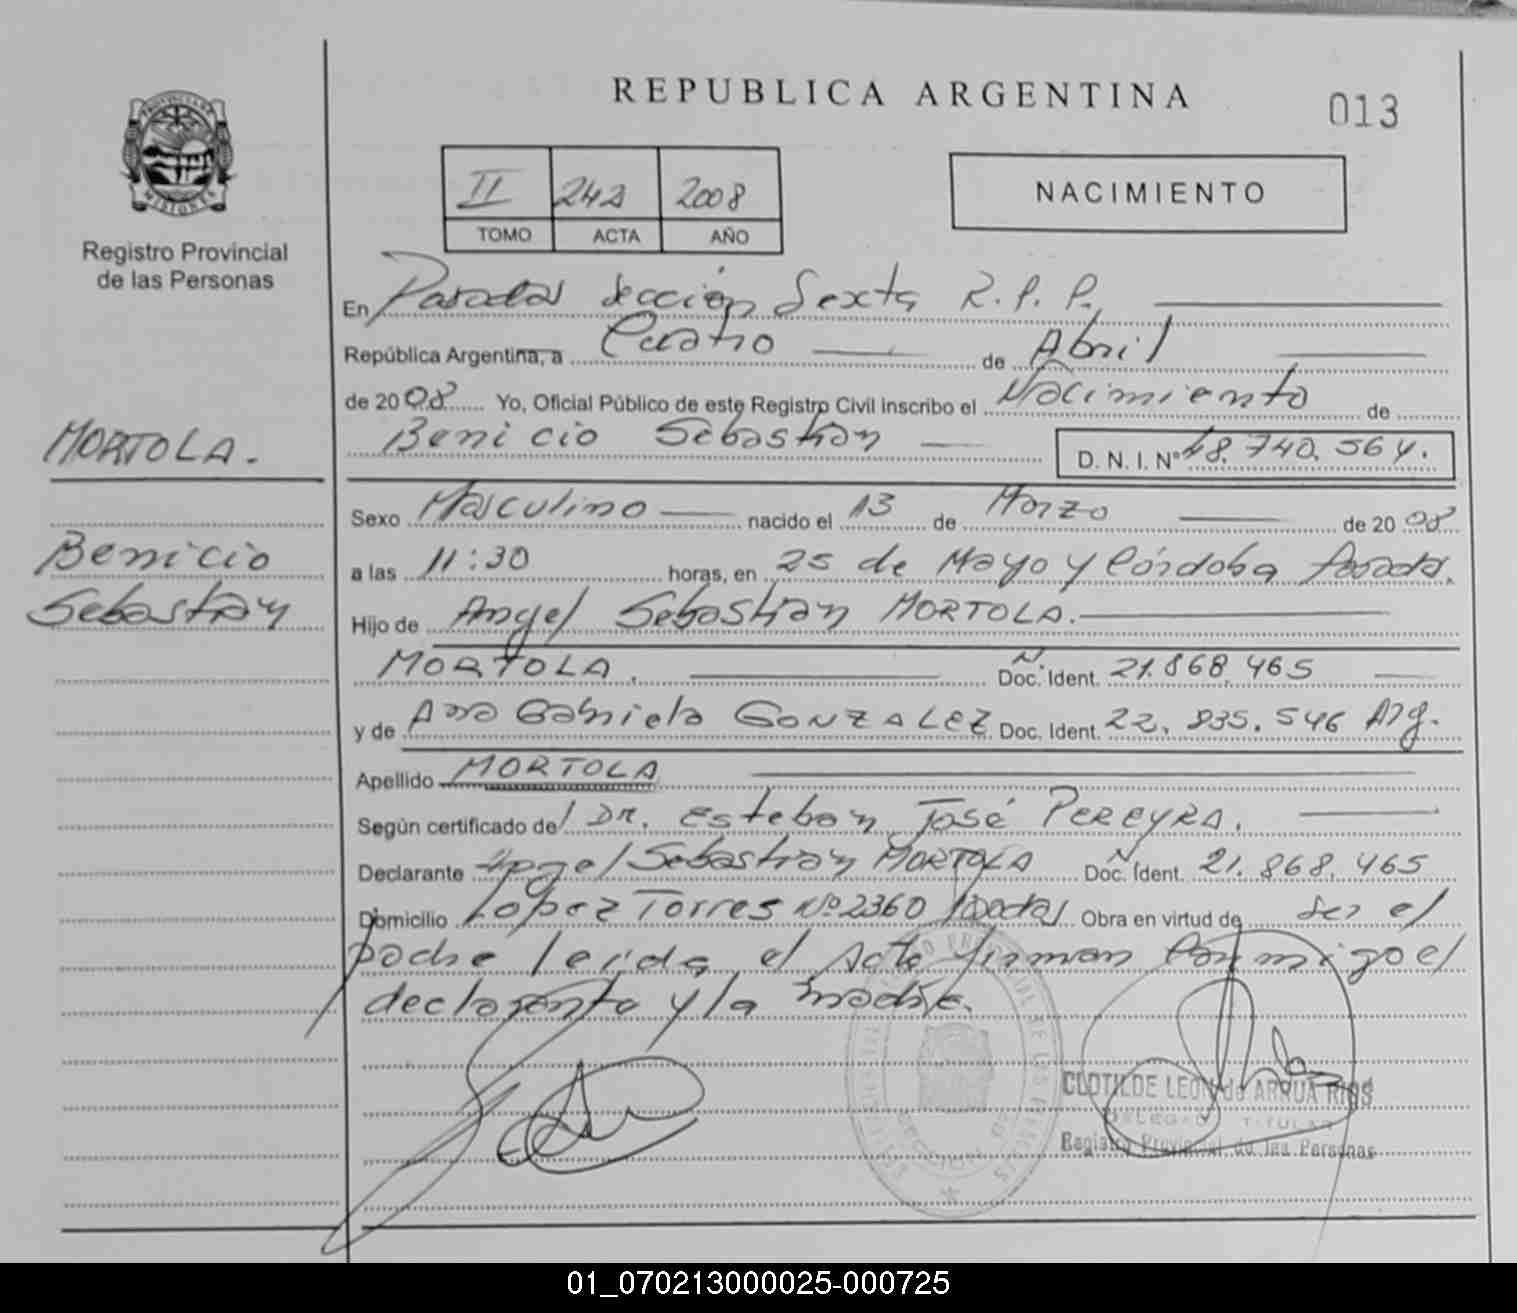 REPUBLICA ARGENTINA
013
PROVINCIA DE
MISIONES
Registro Provincial
de las Personas
II 242 2008
TOMO ACTA AÑO
NACIMIENTO
En Posadas Sección Sexta R. P. P.
República Argentina, a Cuatro de Abril
de 2008 Yo, Oficial Público de este Registro Civil inscribo el Nacimiento de
Benicio Sebastian D. N. I. Nº 48.740.564.
MORTOLA.
Benicio
Sebastian
Sexo Masculino nacido el 13 de Marzo de 2008
a las 11:30 horas, en 25 de Mayo y Córdoba Posadas.
Hijo de Angel Sebastian MORTOLA.
MORTOLA. Doc. Ident. 21.868.465
y de Ana Gabriela GONZALEZ Doc. Ident. 22.835.546 Arg.
Apellido MORTOLA
Según certificado del Dr. Esteban José PEREYRA.
Declarante Angel Sebastian MORTOLA Doc. Ident. 21.868.465
Domicilio Lopez Torres Nº 2360 Posadas Obra en virtud de ser el
padre leida el Acta firman conmigo el
declarante y la madre.
CLOTILDE LEON de ARRUA RIOS
DELEGADO TITULAR
Registro Provincial de las Personas
01_070213000025-000725